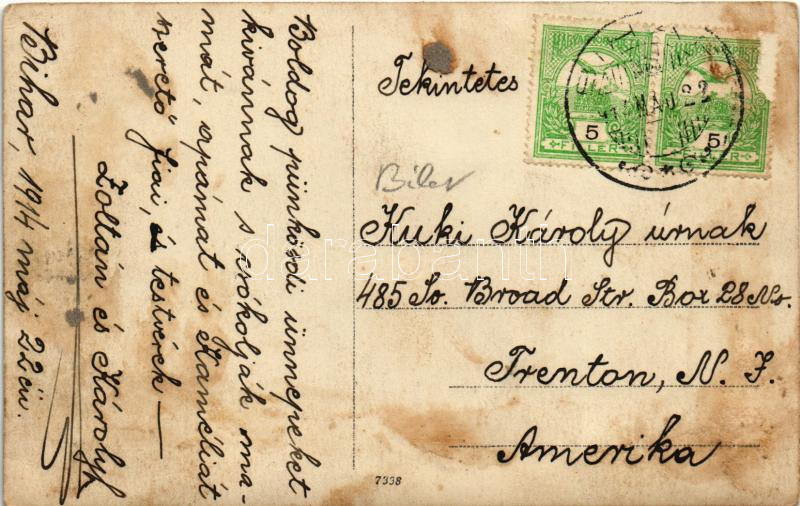 Boldog pünkösdi ünnepeket
kivánnak s csókolják ma-
mát, apámat és Kaméliát
szerető fiai, és testvérek —
Zoltán és Károly
Bihar, 1914 máj 22én.
Tekintetes
Kuki Károly úrnak
485 So. Broad Str. Box 28 No.
Trenton, N. J.
Amerika
Bihar
MAGYAR KIR. POSTA
5
FILLÉR
5
FILLÉR
22
7338
darabanth